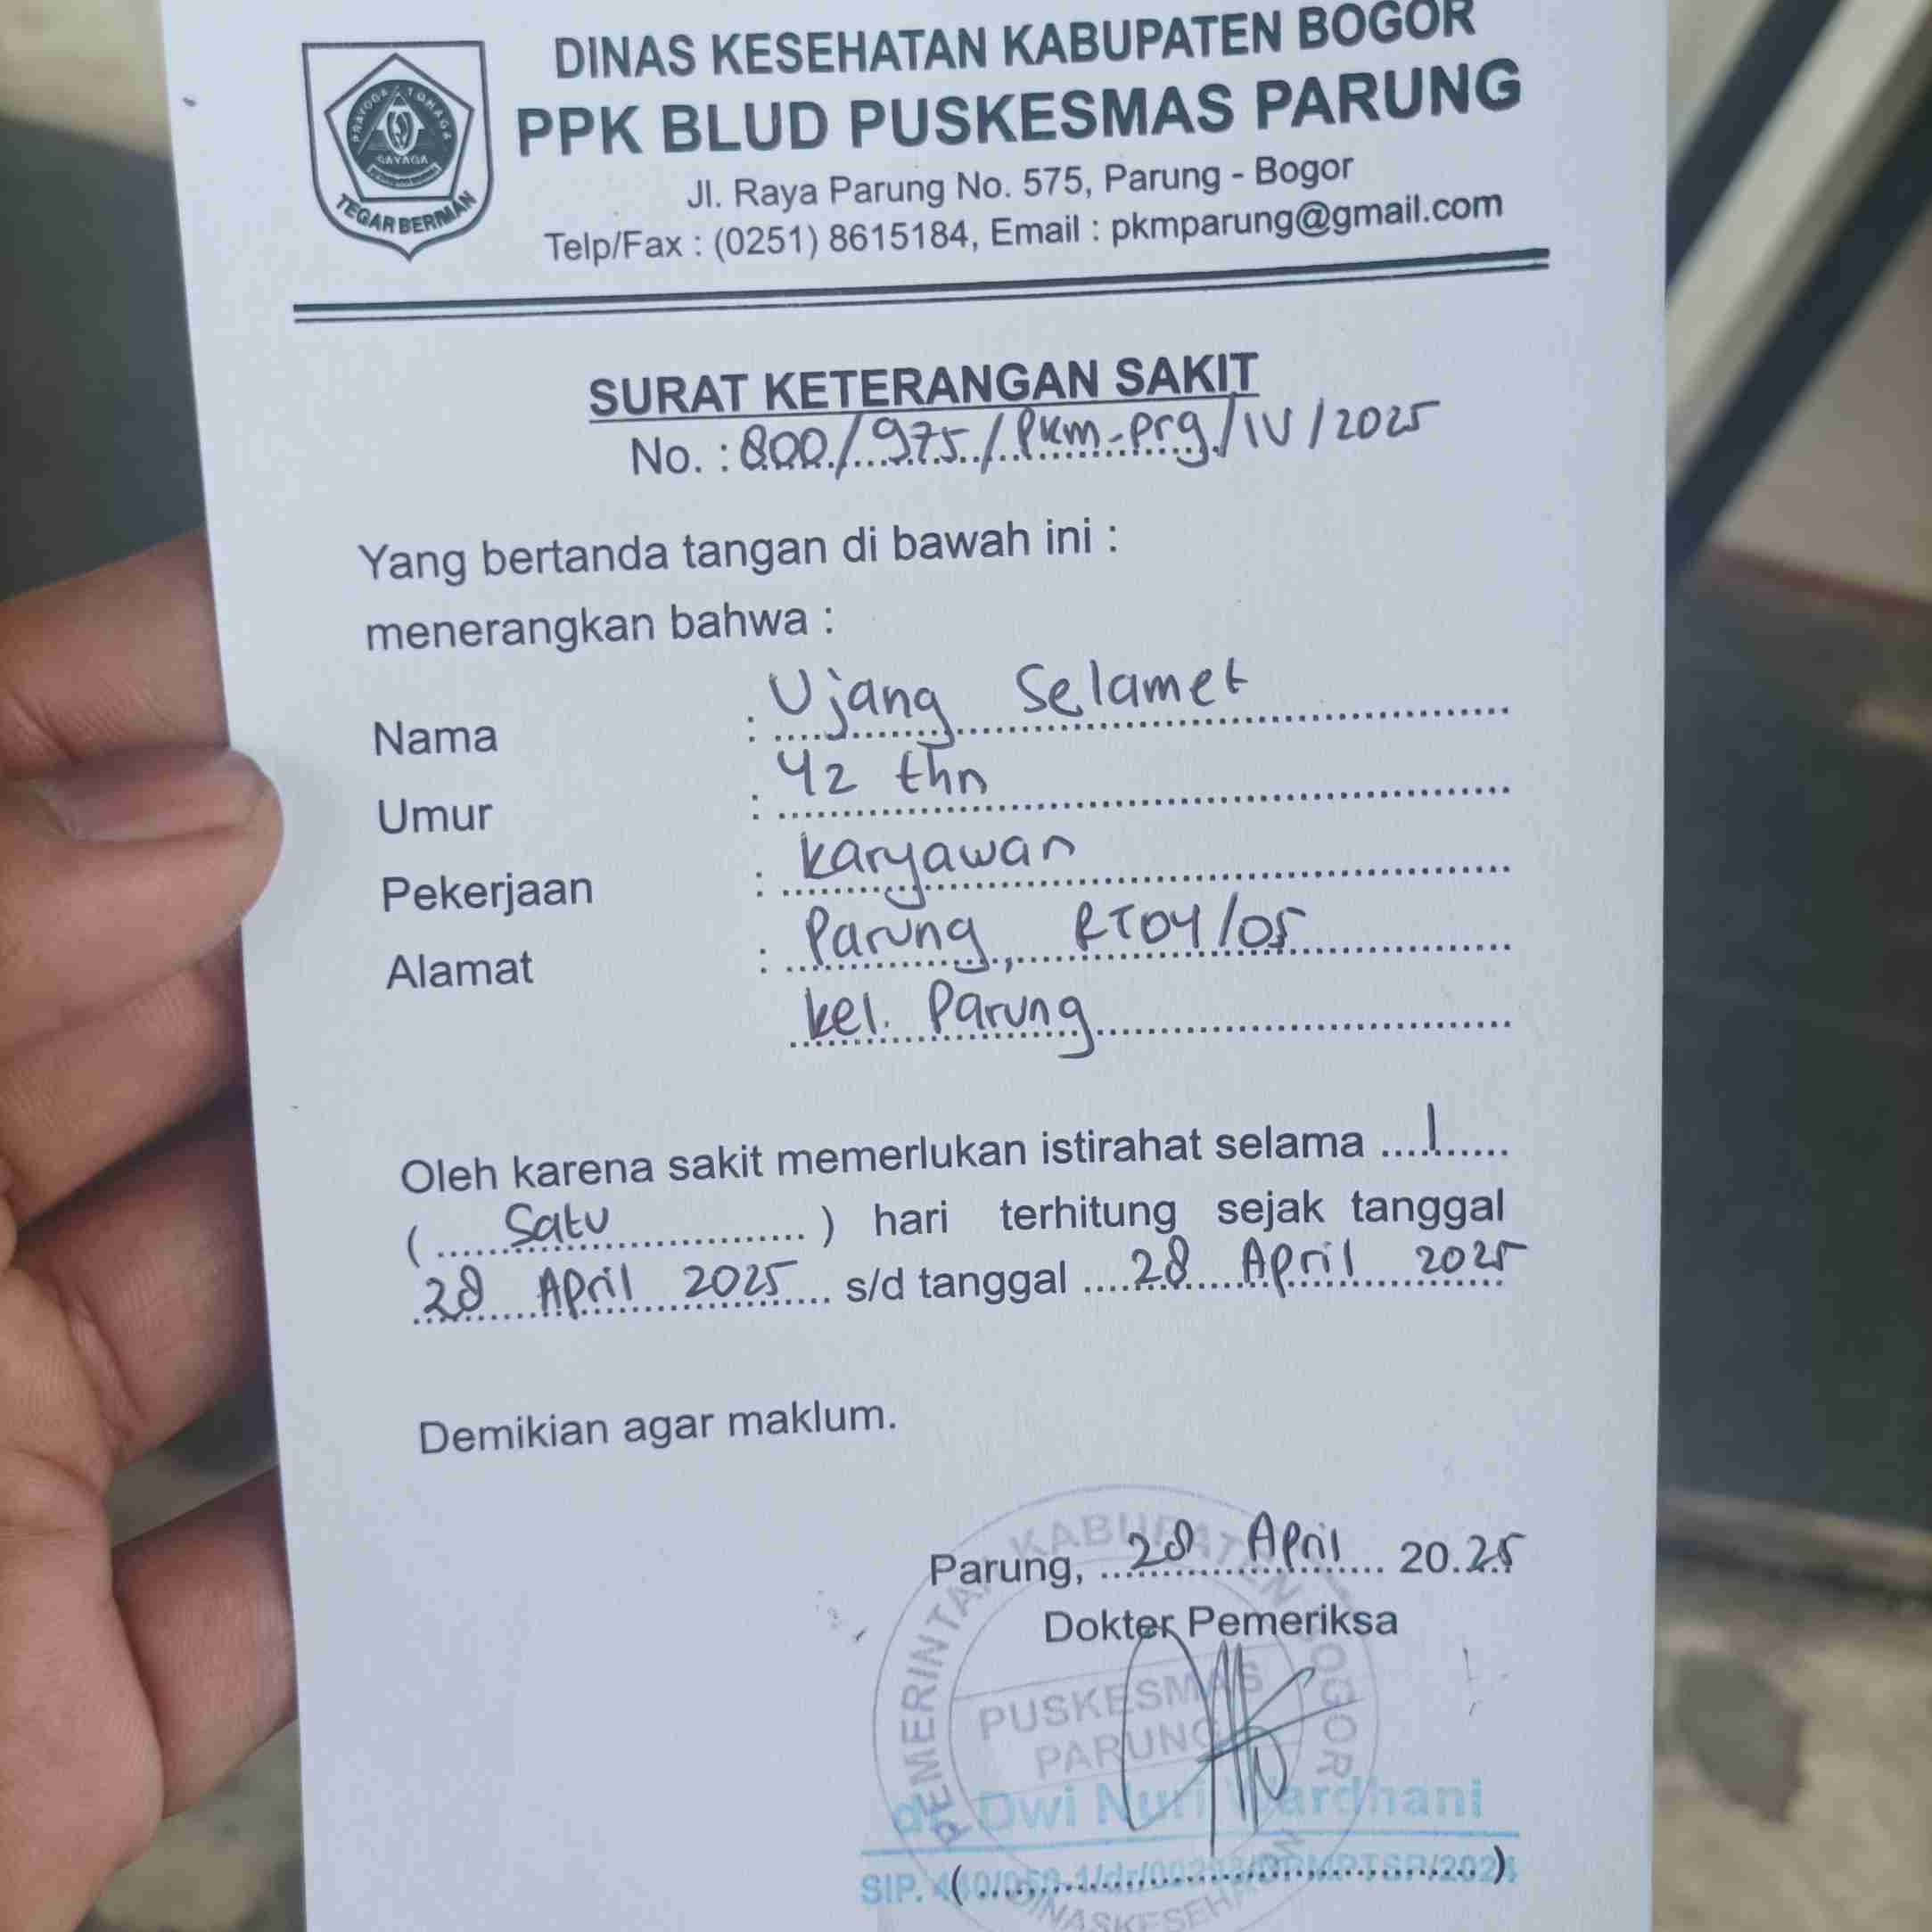 DINAS KESEHATAN KABUPATEN BOGOR
PPK BLUD PUSKESMAS PARUNG
Jl. Raya Parung No. 575, Parung - Bogor
Telp/Fax : (0251) 8615184, Email : pkmparung@gmail.com
PRAYOGA TOHAGA
SAYAGA
TEGAR BERIMAN
SURAT KETERANGAN SAKIT
No. : 800/975/Pkm-prg/IV/2025
Yang bertanda tangan di bawah ini :
menerangkan bahwa :
Nama : Ujang Selamet
Umur : 42 thn
Pekerjaan : karyawan
Alamat : Parung, RT04/05
kel. Parung
Oleh karena sakit memerlukan istirahat selama 1
( Satu ) hari terhitung sejak tanggal
28 April 2025 s/d tanggal 28 April 2025
Demikian agar maklum.
Parung, 28 April 20.25
Dokter Pemeriksa
PEMERINTAH KABUPATEN BOGOR
PUSKESMAS
PARUNG
dr. Dwi Nuri Wardhani
SIP.
DINAS KESEHATAN